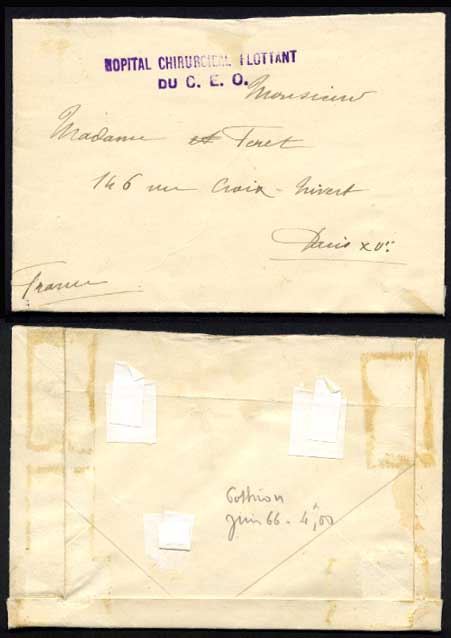 HOPITAL CHIRURGICAL FLOTTANT
DU C. E. O.
Monsieur
Madame et Feret
146 rue Croix-Nivert
Paris XVe
France
juin 66 - 4,00